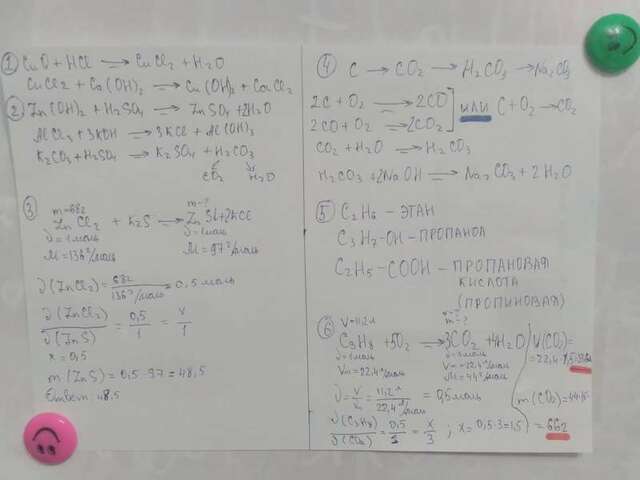 1) CuO + HCl ⇌ CuCl2 + H2O
CuCl2 + Ca(OH)2 ⇌ Cu(OH)2 + CaCl2
2) Zn(OH)2 + H2SO4 ⇌ ZnSO4 + 2H2O
AlCl3 + 3KOH ⇌ 3KCl + Al(OH)3
K2CO3 + H2SO4 ⇌ K2SO4 + H2CO3
CO2 H2O
3) m=68г m-?
ZnCl2 + K2S ⇌ ZnS↓ + 2KCl
ν=1моль ν=1моль
M=136г/моль M=97г/моль
ν(ZnCl2) = 68г / 136г/моль = 0,5 моль
ν(ZnCl2) / ν(ZnS) = 0,5 / 1 = x / 1
x = 0,5
m(ZnS) = 0,5 · 97 = 48,5
Ответ: 48,5
4) C → CO2 → H2CO3 → Na2CO3
2C + O2 ⇌ 2CO
2CO + O2 ⇌ 2CO2
ИЛИ C + O2 → CO2
CO2 + H2O ⇌ H2CO3
H2CO3 + 2NaOH ⇌ Na2CO3 + 2H2O
5) C2H6 – ЭТАН
C3H7-OH – ПРОПАНОЛ
C2H5 – COOH – ПРОПАНОВАЯ
КИСЛОТА
(ПРОПИНОВАЯ)
6) V=11,2л m-?
C3H8 + 5O2 ⇌ 3CO2 + 4H2O
ν=1моль ν=3моль
Vm=22,4г/моль Vm=22,4г/моль
M=44г/моль
ν = V / Vm = 11,2л / 22,4л/моль = 0,5 моль
ν(C3H8) / ν(CO2) = 0,5 / 1 = x / 3 ; x = 0,5·3 = 1,5
V(CO2) =
= 22,4·1,5
m(CO2) = 44·1,5
= 66г